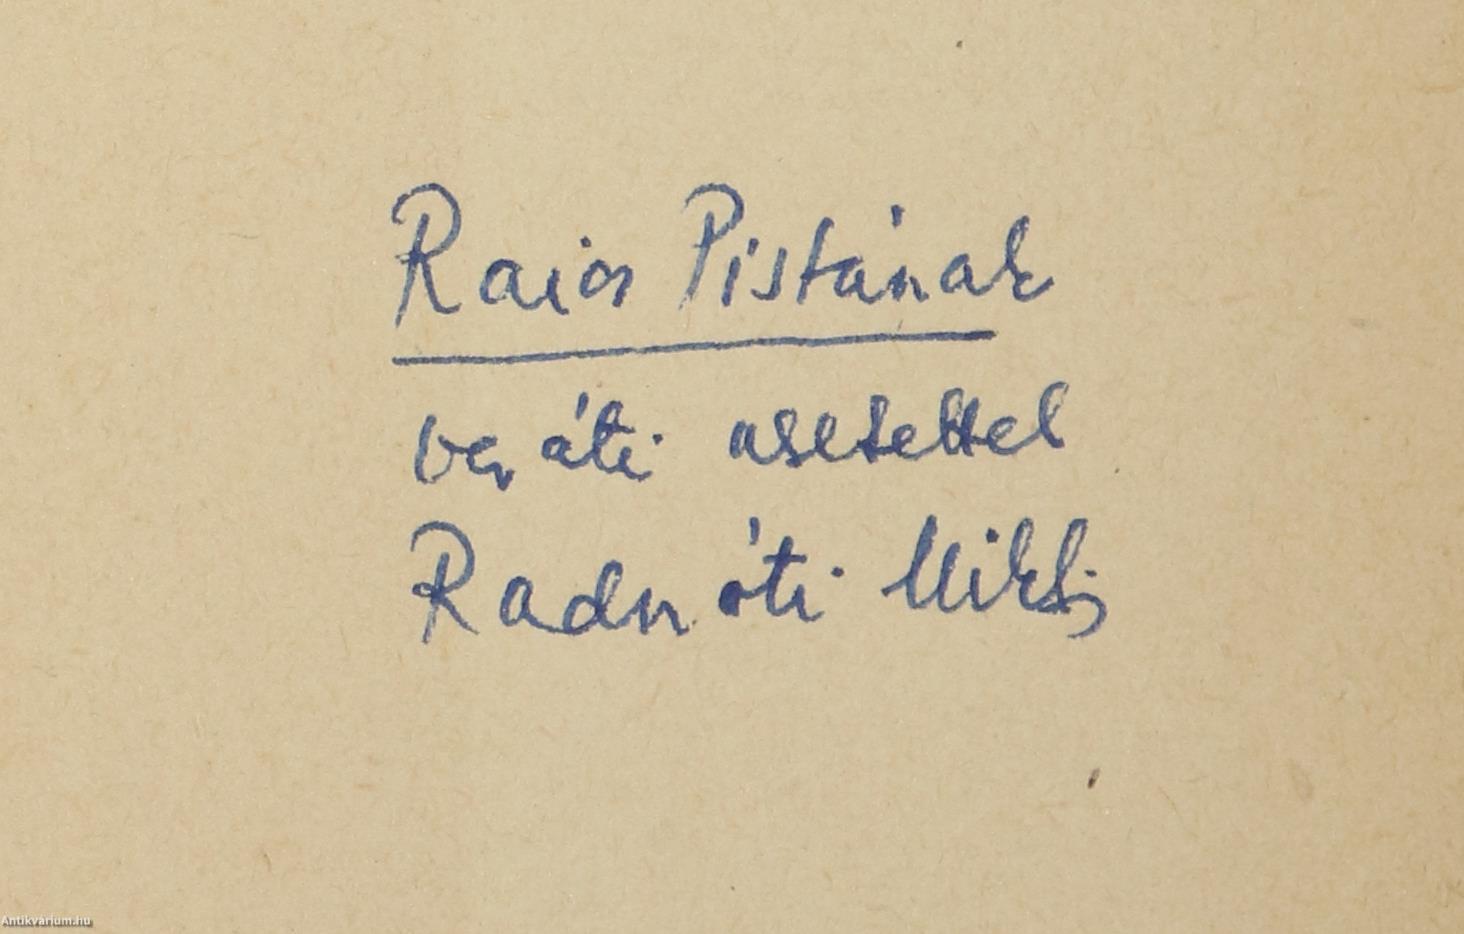 Rajcs Pistának
baráti szeretettel
Radnóti Miklós
Antikvárium.hu